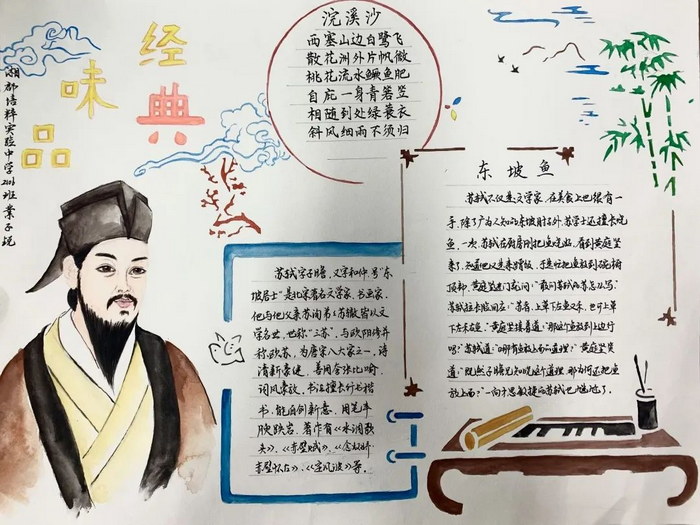 品味经典
湘郡培粹实验中学2111班
浣溪沙
西塞山边白鹭飞
散花洲外片帆微
桃花流水鳜鱼肥
自庇一身青箬笠
相随到处绿蓑衣
斜风细雨不须归
苏轼字子瞻，又字和仲，号"东
坡居士"是北宋著名文学家、书画家，
他与他父亲苏洵弟苏辙皆以文
学名世，世称"三苏"，与欧阳修并
称欧苏，为唐宋八大家之一，诗
清新豪健，善用夸张比喻，
词风豪放，书法擅长行书楷
书，能自创新意，用笔丰
腴跌宕，著作有《水调歌
头》《赤壁赋》、《念奴娇
赤壁怀古》、《定风波》等。
东坡鱼
苏轼不仅是文学家，在美食上也很有一
手，除了广为人知的东坡肘子外，苏学士还擅长烧
鱼，一次，苏轼在厨房刚把鱼烧好，看到黄庭坚
来了，知道他又是来蹭饭，于是忙把鱼放到碗橱
顶部，黄庭坚进门就问："敢问苏轼的苏怎么写"
苏轼拉长脸回应："苏者，上草下左鱼又禾，
左禾右鱼，"黄庭坚接着道："那这个鱼放到上边行
吗？"苏轼道："哪有鱼放上面的道理？"黄庭坚笑
道："既然子瞻兄知晓这个道理，那为何还把鱼
放上面？"一向才思敏捷的苏轼